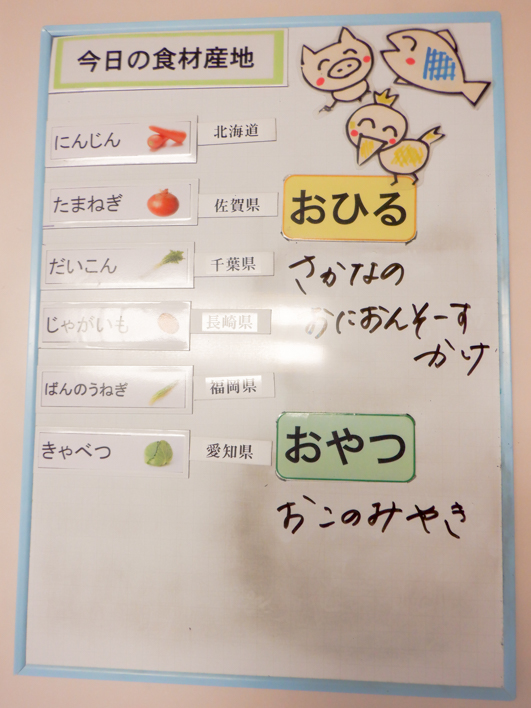 今日の食材産地
にんじん 北海道
たまねぎ 佐賀県
だいこん 千葉県
じゃがいも 長崎県
ばんのうねぎ 福岡県
きゃべつ 愛知県
おひる
さかなの
おにおんそーす
かけ
おやつ
おこのみやき